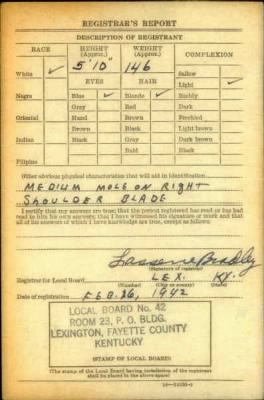 REGISTRAR'S REPORT
DESCRIPTION OF REGISTRANT
RACE HEIGHT (Approx.) WEIGHT (Approx.) COMPLEXION
White ✓ 5'10" 146 Sallow
EYES HAIR Light ✓
Negro Blue ✓ Blonde ✓ Ruddy
Gray Red Dark
Oriental Hazel Brown Freckled
Brown Black Light brown
Indian Black Gray Dark brown
Bald Black
Filipino
Other obvious physical characteristics that will aid in identification
MEDIUM MOLE ON RIGHT
SHOULDER BLADE
I certify that my answers are true; that the person registered has read or has had
read to him his own answers; that I have witnessed his signature or mark and that
all of his answers of which I have knowledge are true, except as follows:
Bradley
(Signature of registrar)
Registrar for Local Board LEX. KY.
(Number) (City or county) (State)
Date of registration FEB. 16, 1942
LOCAL BOARD No. 42
ROOM 23, P. O. BLDG.
LEXINGTON, FAYETTE COUNTY
KENTUCKY
(STAMP OF LOCAL BOARD)
(The stamp of the Local Board having jurisdiction of the registrant
shall be placed in the above space)